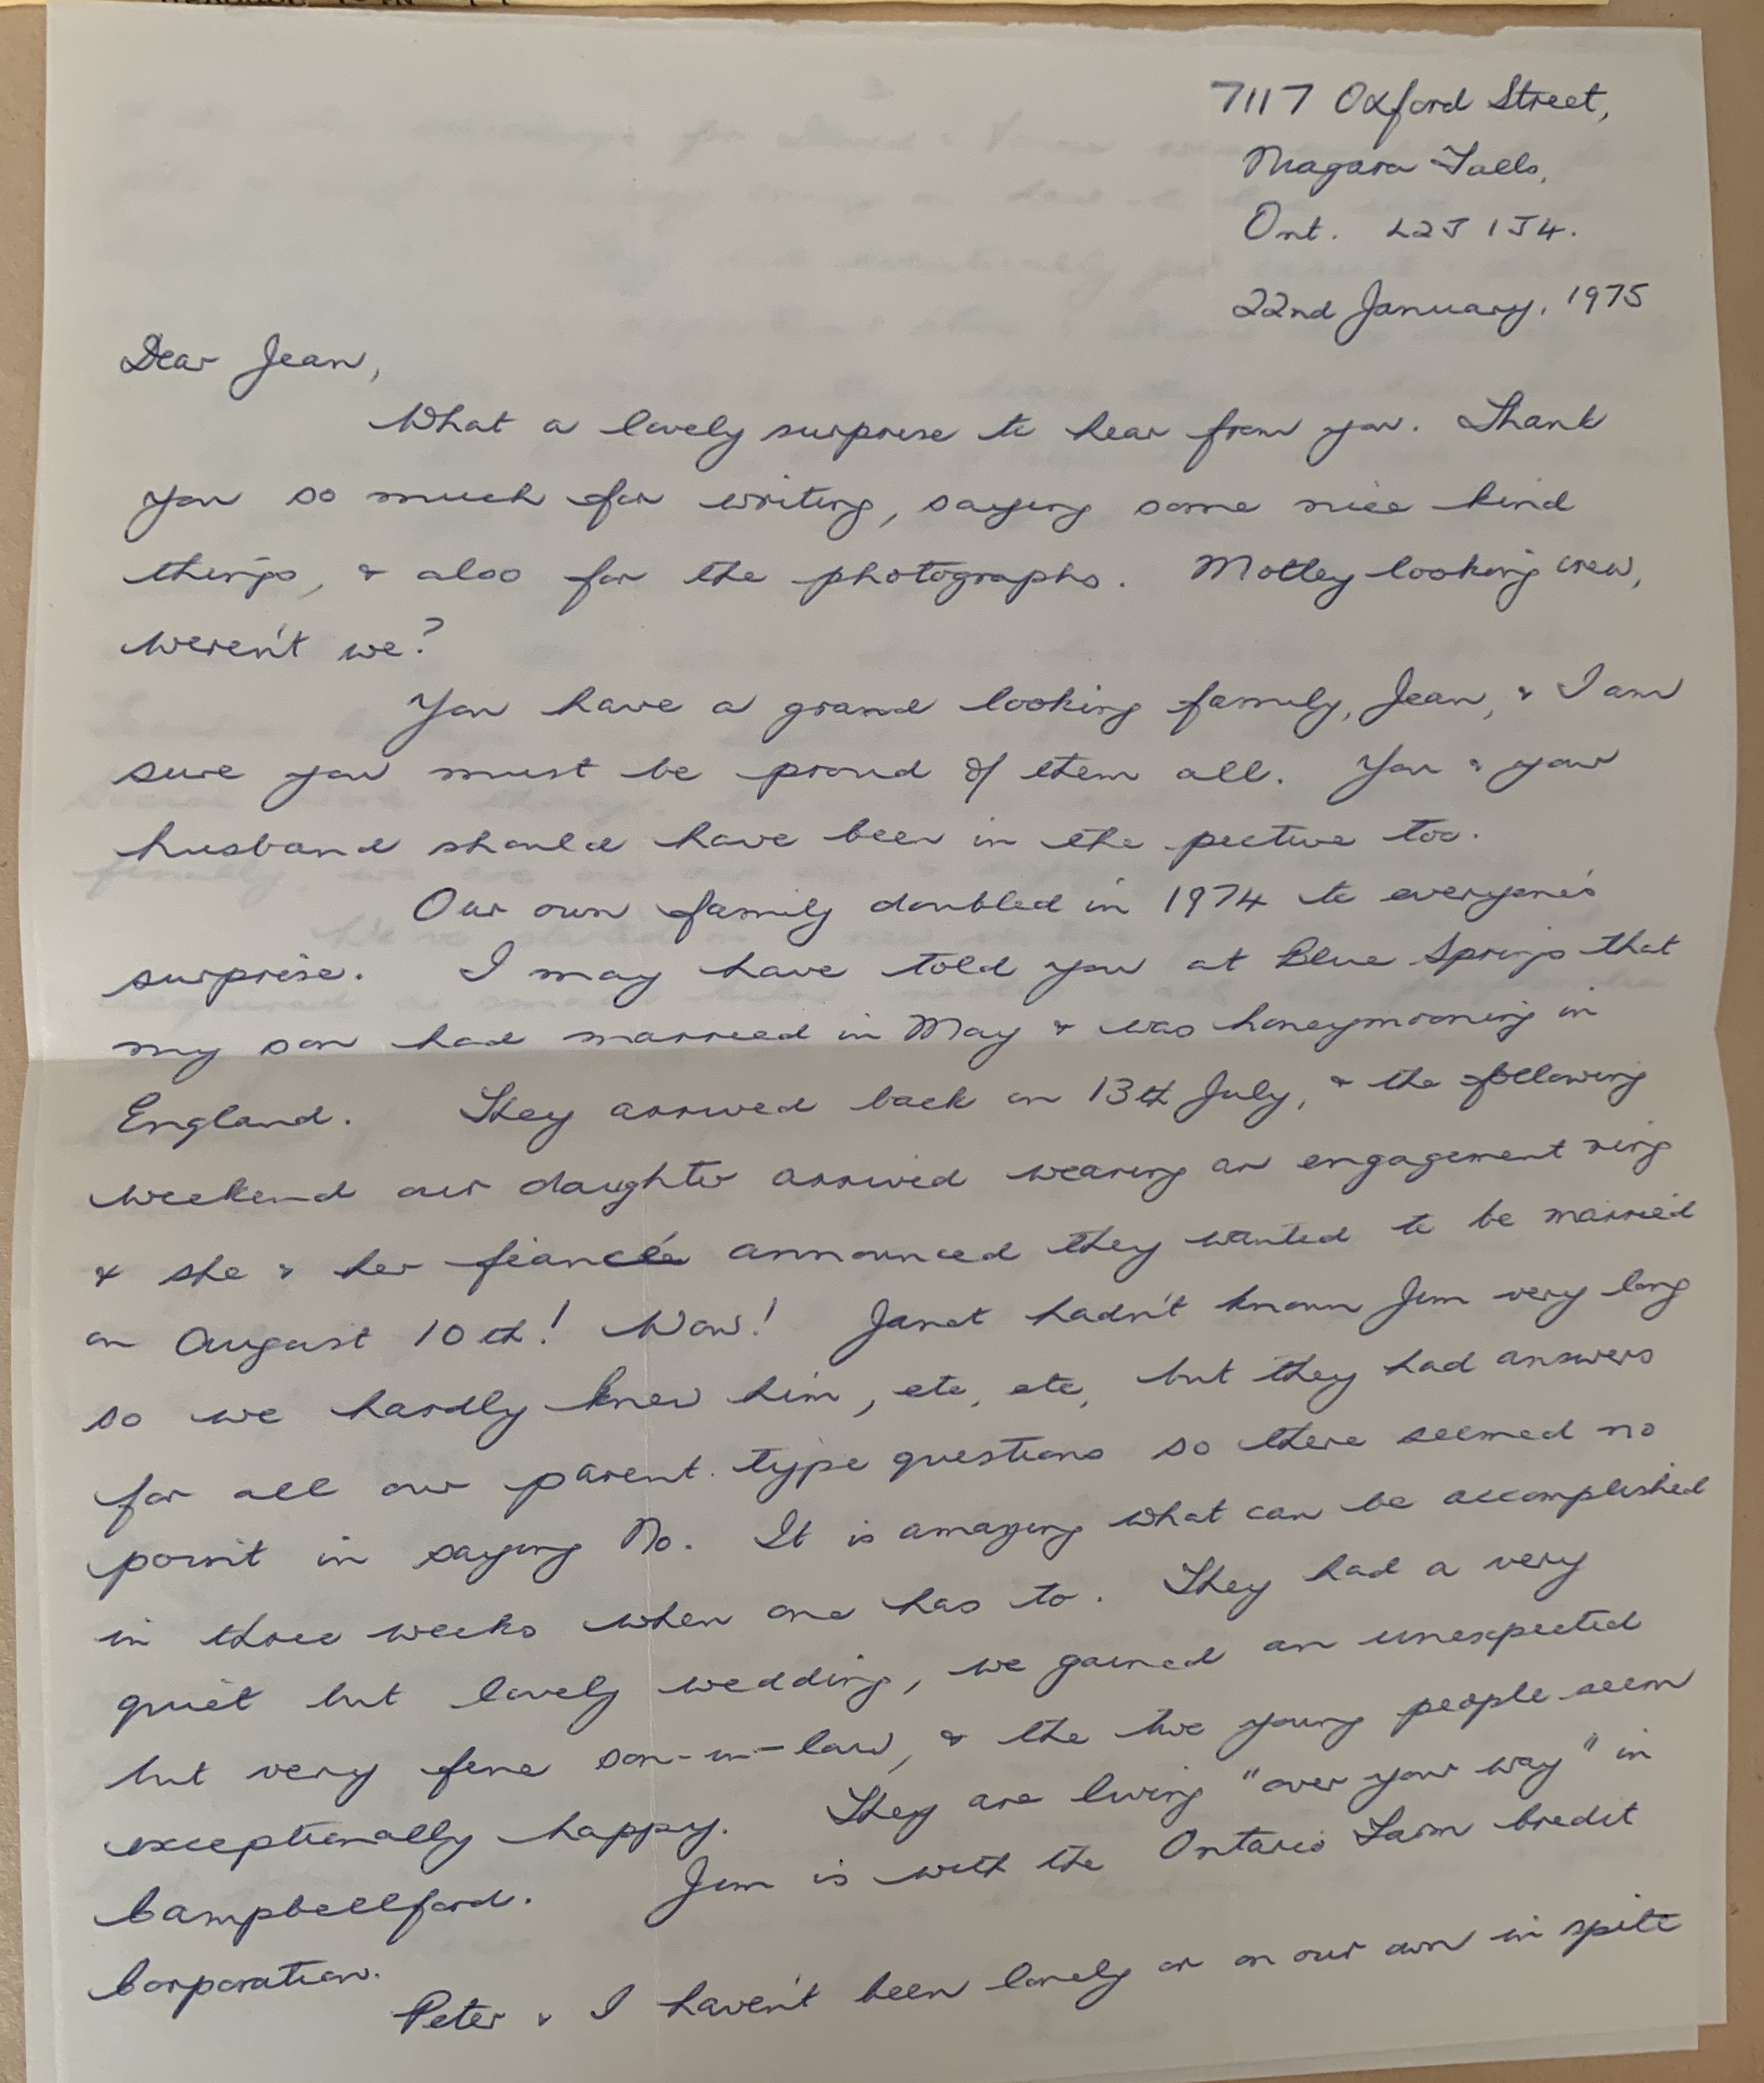 7117 Oxford Street,
Niagara Falls,
Ont. L2J 1J4.
22nd January, 1975
Dear Jean,
What a lovely surprise to hear from you. Thank
you so much for writing, saying some nice kind
things, & also for the photographs. Motley looking crew,
weren't we?
You have a grand looking family, Jean, & I am
sure you must be proud of them all. You & your
husband should have been in the picture too.
Our own family doubled in 1974 to everyone's
surprise. I may have told you at Blue Springs that
my son had married in May & was honeymooning in
England. They arrived back on 13th July, & the following
weekend our daughter arrived wearing an engagement ring
& she & her fiancé announced they wanted to be married
on August 10th! Wow! Janet hadn't known Jim very long
so we hardly knew him, etc, etc, but they had answers
for all our parent type questions so there seemed no
point in saying No. It is amazing what can be accomplished
in three weeks when one has to. They had a very
quiet but lovely wedding, we gained an unexpected
but very fine son-in-law, & the two young people seem
exceptionally happy. They are living "over your way" in
Campbellford. Jim is with the Ontario Farm Credit
Corporation.
Peter & I haven't been lonely or on our own in spite